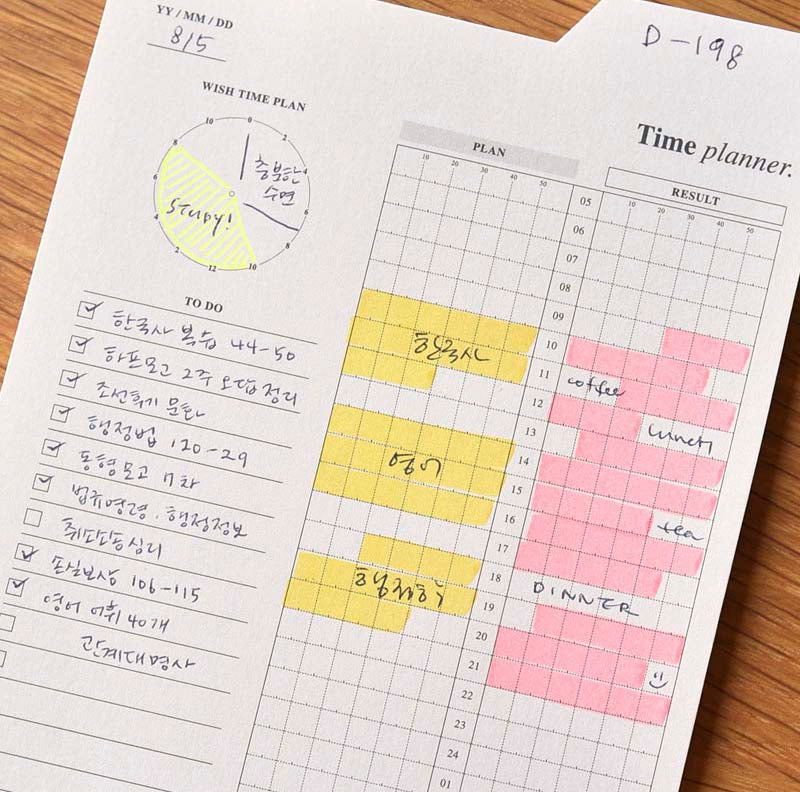 YY / MM / DD
8/5
D-198
WISH TIME PLAN
0
2
4
6
8
10
12
2
4
6
8
10
충분한
수면
STUDY!
Time planner.
PLAN
RESULT
10 20 30 40 50
10 20 30 40 50
05
06
07
08
09
10
11
12
13
14
15
16
17
18
19
20
21
22
23
24
01
한국사
영어
행정학
coffee
lunch
tea
DINNER
TO DO
한국사 복습 44-50
하프모고 2주 오답정리
조선후기 문화
행정법 120-29
동형모고 7차
법규명령·행정정보
손실보상 106-115
영어 어휘 40개
관계대명사